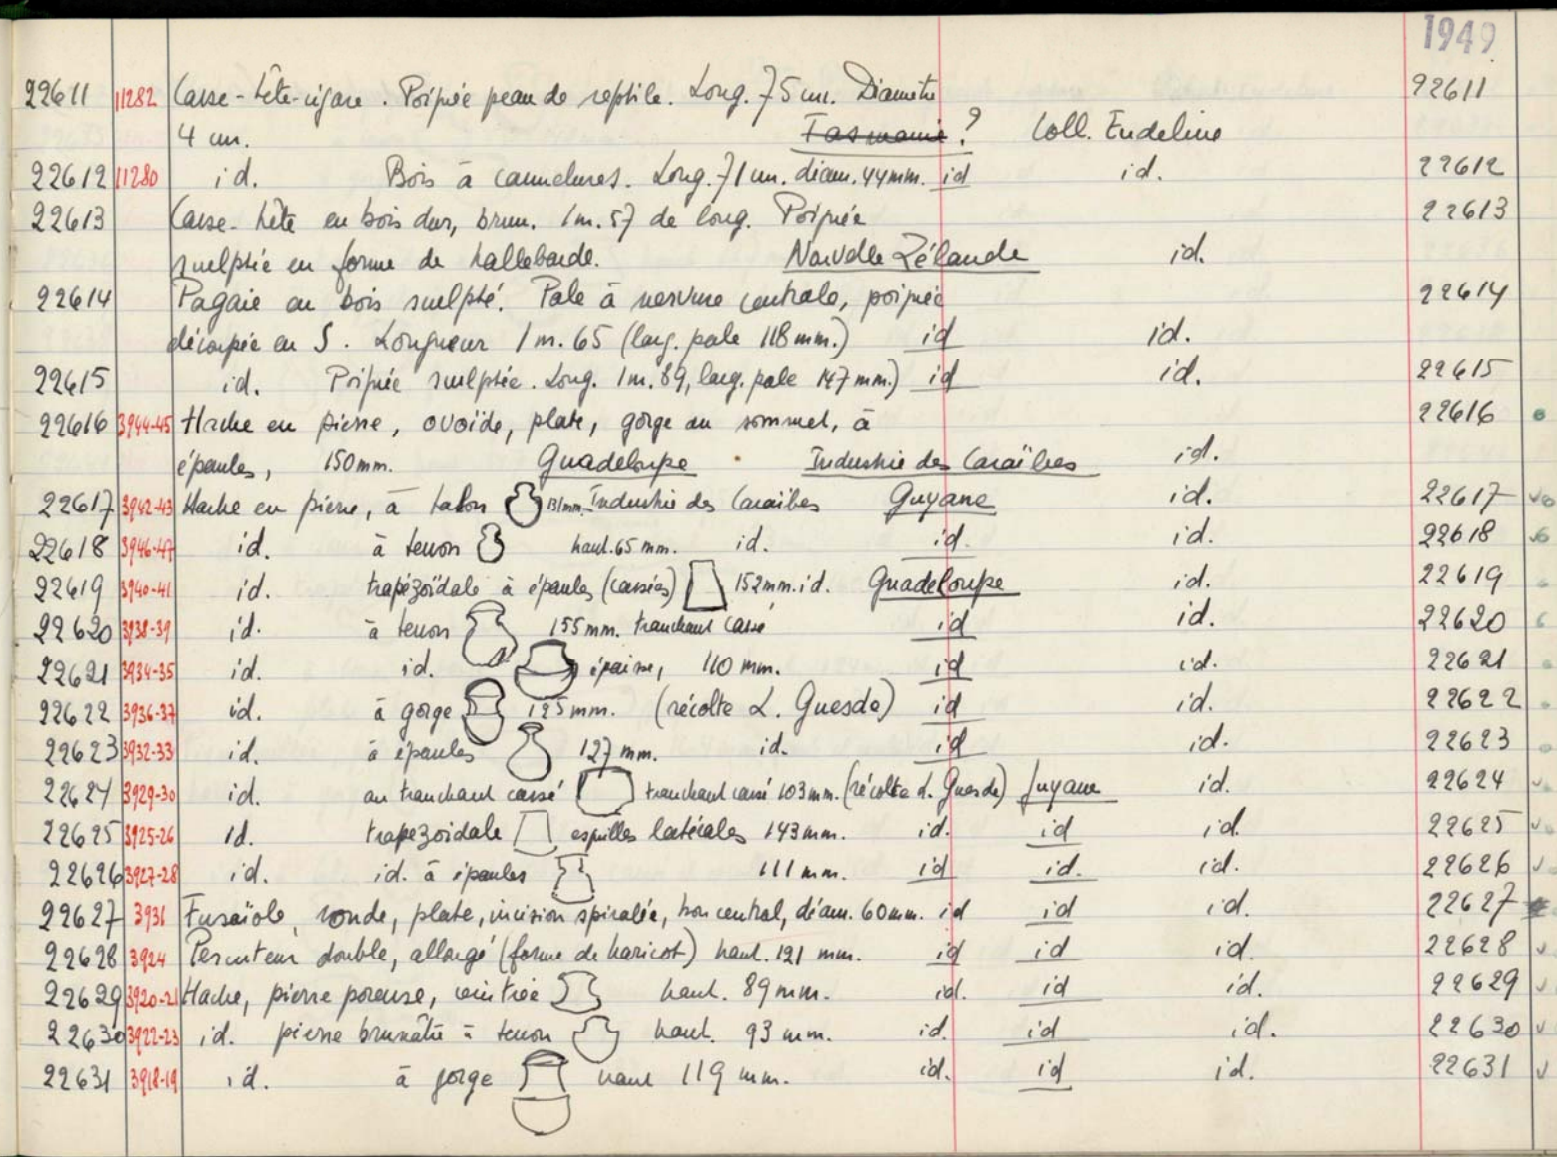 1949
22611 11282 Casse-tête-cigare. Poignée peau de reptile. Long. 75 cm. Diamètre 22611
4 cm. Tasmanie ? Coll. Eudeline
22612 11280 id. Bois à cannelures. Long. 71 cm. diam. 44 mm. id id. 22612
22613 Casse-tête en bois dur, brun. 1 m. 57 de long. Poignée 22613
sculptée en forme de hallebarde. Nouvelle Zélande id.
22614 Pagaie en bois sculpté. Pale à nervure centrale, poignée 22614
découpée en S. Longueur 1 m. 65 (larg. pale 118 mm.) id id.
22615 id. Poignée sculptée. Long. 1 m. 89, larg. pale 147 mm.) id id. 22615
22616 3944-45 Hache en pierre, ovoïde, plate, gorge au sommet, à 22616
épaules, 150 mm. Guadeloupe . Industrie des Caraïbes id.
22617 3942-43 Hache en pierre, à talon 131 mm. Industrie des Caraïbes Guyane id. 22617
22618 3946-47 id. à tenon haut. 65 mm. id. id. id. 22618
22619 3940-41 id. trapézoïdale à épaules (cassées) 152 mm. id. Guadeloupe id. 22619
22620 3938-39 id. à tenon 155 mm. tranchant cassé id id. 22620
22621 3934-35 id. id. épaisse, 110 mm. id id. 22621
22622 3936-37 id. à gorge 125 mm. (récolte L. Guesde) id id. 22622
22623 3932-33 id. à épaules 127 mm. id. id id. 22623
22624 3929-30 id. au tranchant cassé tranchant cassé 103 mm. (récolte L. Guesde) Guyane id. 22624
22625 3925-26 id. trapezoidale esquilles latérales 143 mm. id. id id. 22625
22626 3927-28 id. id. à épaules 111 mm. id id. id. 22626
22627 3931 Fusaïole, ronde, plate, incision spiralée, trou central, diam. 60 mm. id id id. 22627
22628 3924 Percuteur double, allongé (forme de haricot) haut. 121 mm. id id id. 22628
22629 3920-21 Hache, pierre poreuse, ceintrée haut. 89 mm. id. id id. 22629
22630 3922-23 id. pierre brunâtre à tenon haut. 93 mm. id. id id. 22630
22631 3918-19 id. à gorge haut 119 mm. id. id id. 22631